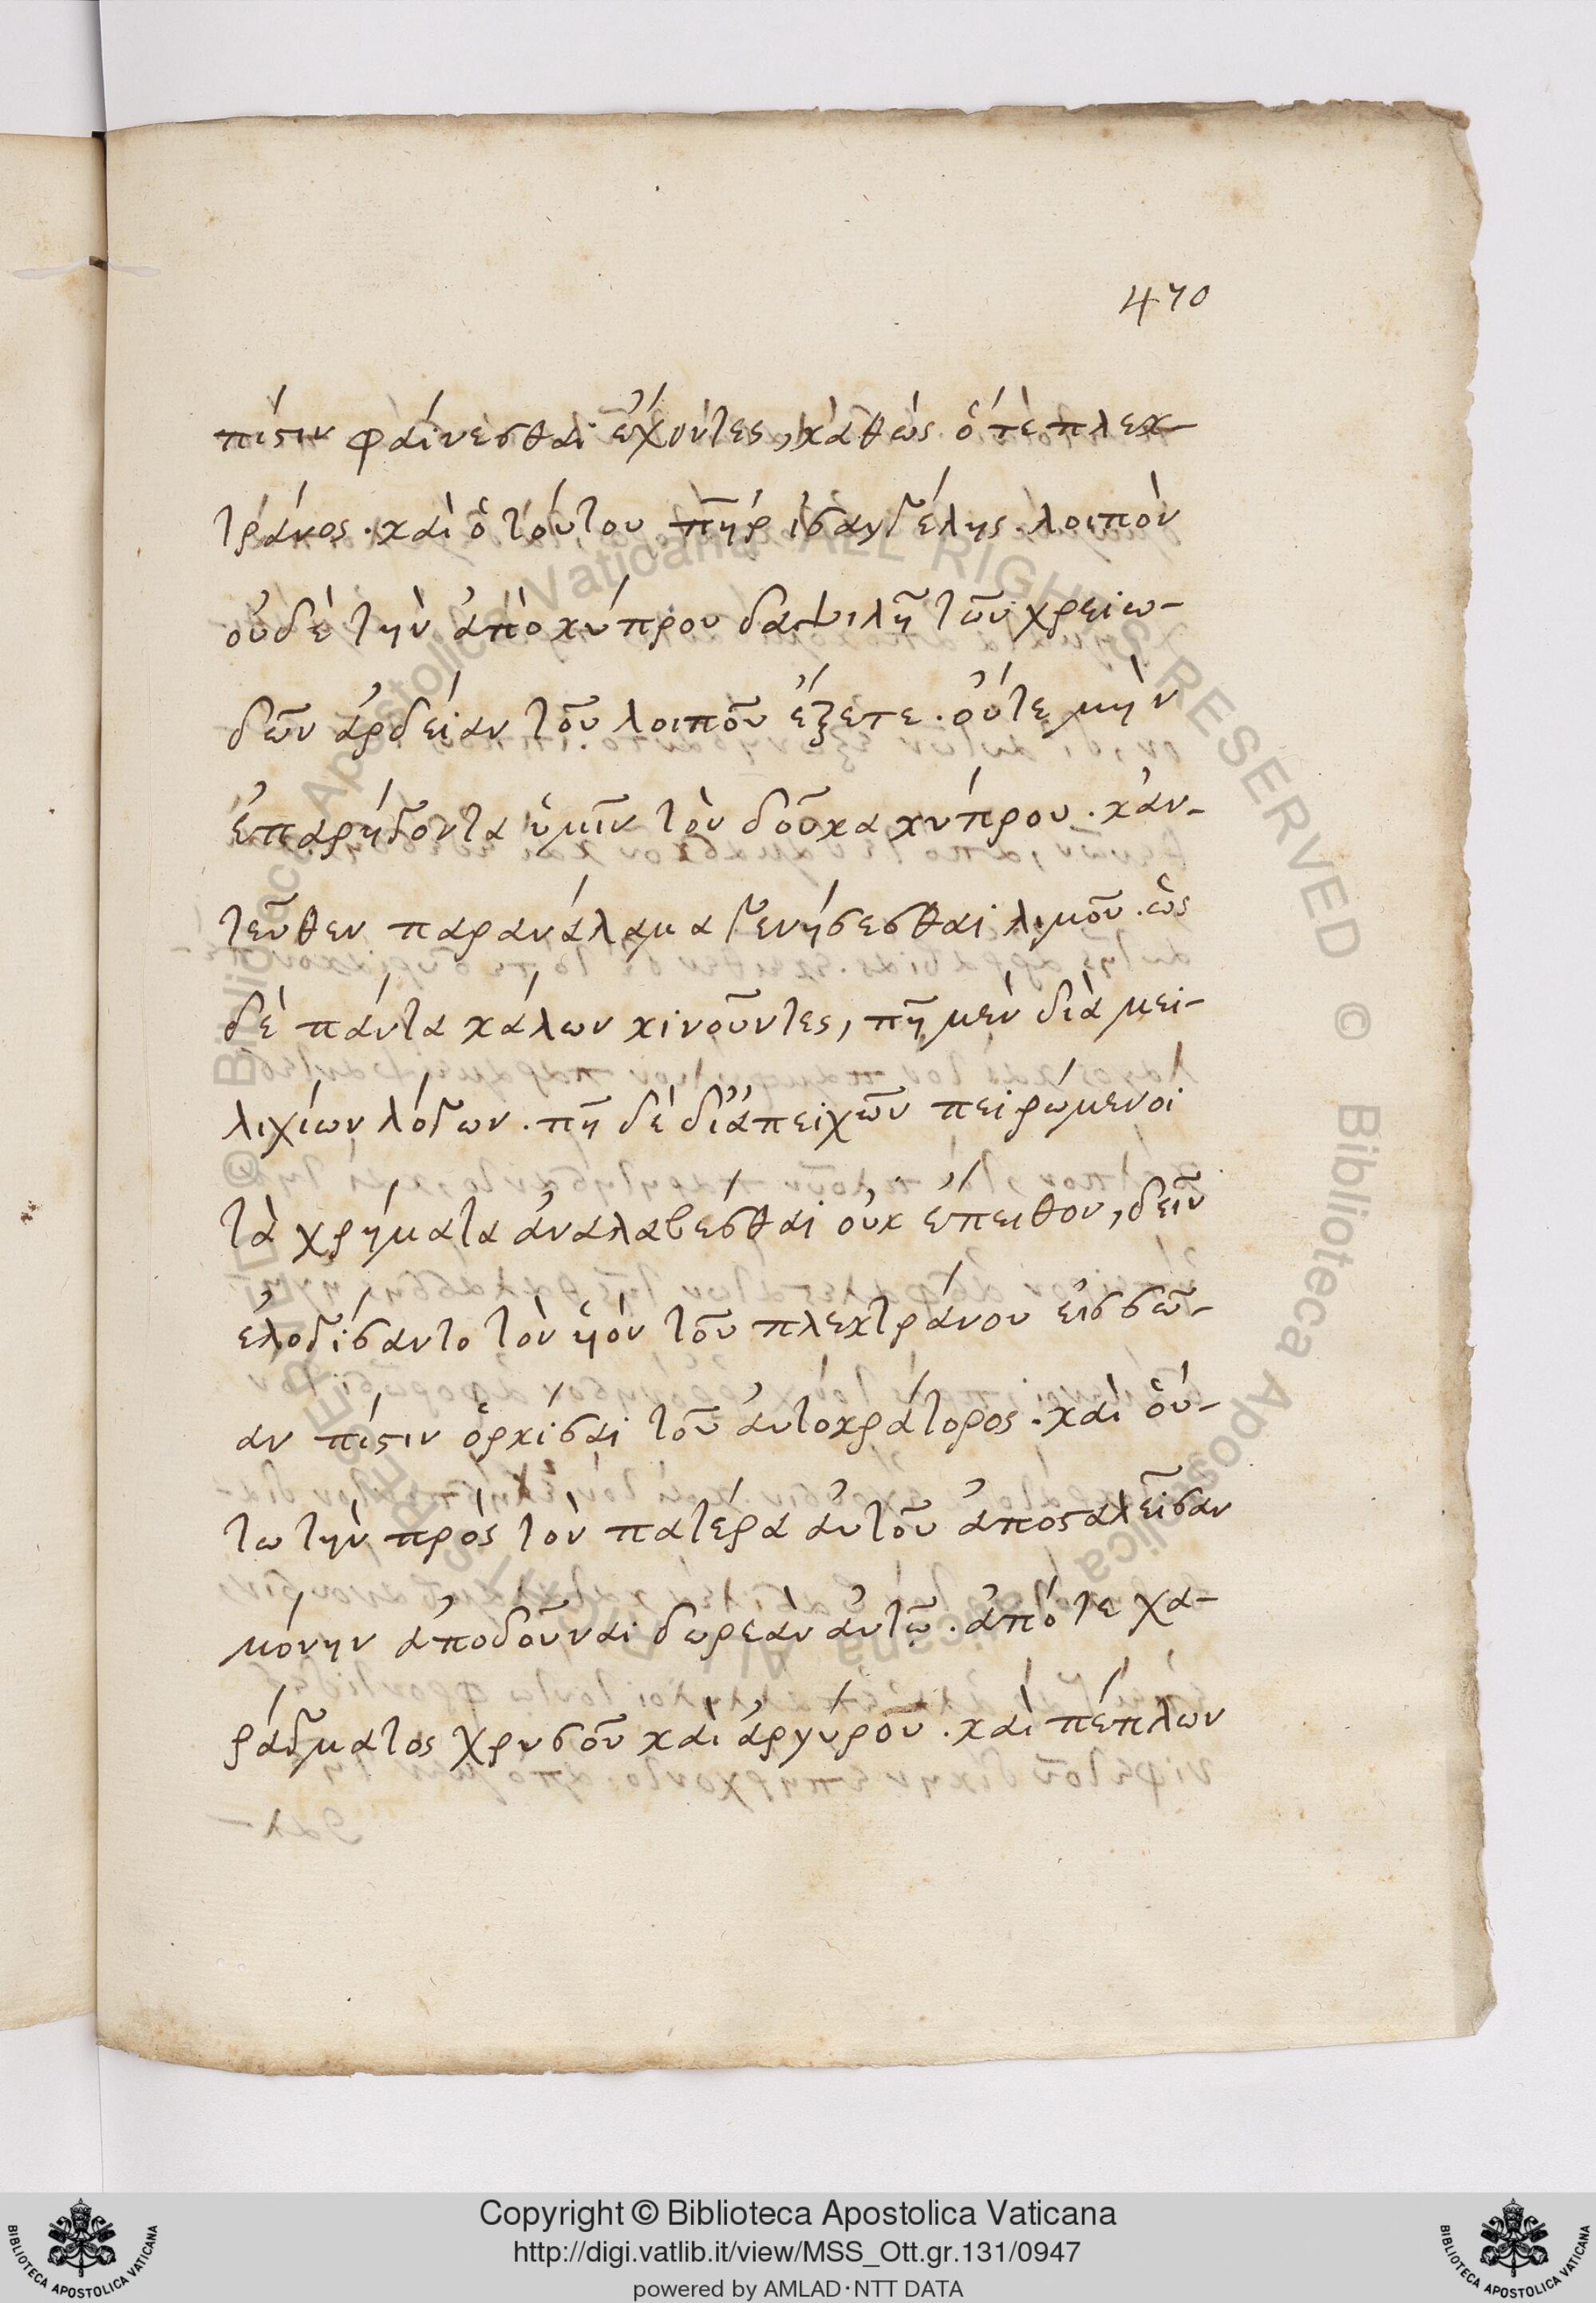 470
πίστιν φαίνεσθαι ἔχοντες, καθὼς ὅ τε πλεκ-
τράνος. καὶ ὁ τούτου πηρ ἰσαγγέλης. λοιπὸν
οὐδὲ τὴν ἀπὸ κύπρου δαψιλῆ τῶν χρειω-
δῶν ἀρδείαν τοῦ λοιποῦ ἕξετε. οὔτε μὴν
ἐπαρήγοντα ὑμῖν τὸν δοῦκα κύπρου. κἀν-
τεῦθεν παρανάλαμα γενήσεσθαι λιμοῦ. ὡς
δὲ πάντα κάλων κινοῦντες, πῆ μὲν διὰ μει-
λιχίων λόγων. πῆ δὲ δι' ἀπειχῶν πειρώμενοι
τὰ χρήματα ἀναλαβέσθαι οὐκ ἔπειθον, δεῖν
ἐλογίσαντο τὸν ἡὸν τοῦ πλεκτράνου εἰσσῶ-
αν πίστιν ὁρκίσαι τοῦ αὐτοκράτορος. καὶ οὕ-
τω τὴν πρὸς τὸν πατέρα αὐτοῦ ἀποσταλεῖσαν
μόνην ἀποδοῦναι δωρεὰν αὐτῷ. ἀπό τε χα-
ράγματος χρυσοῦ καὶ ἀργύρου. καὶ πέπλων
Copyright © Biblioteca Apostolica Vaticana
http://digi.vatlib.it/view/MSS_Ott.gr.131/0947
powered by AMLAD·NTT DATA
BIBLIOTECA APOSTOLICA VATICANA
BIBLIOTECA APOSTOLICA VATICANA